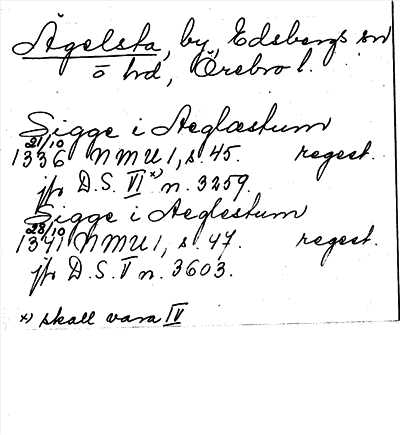 Ägelsta, by, Edsbergs sn
o hd, Örebro l.
Sigge i Aeglæstum
21/10
1336 NMU 1, s. 45. regest.
jfr D.S. VI x) n. 3259.
Sigge i Aeglestum
28/10
1341 NMU 1, s. 47. regest.
jfr D.S. V n. 3603.
x) skall vara IV